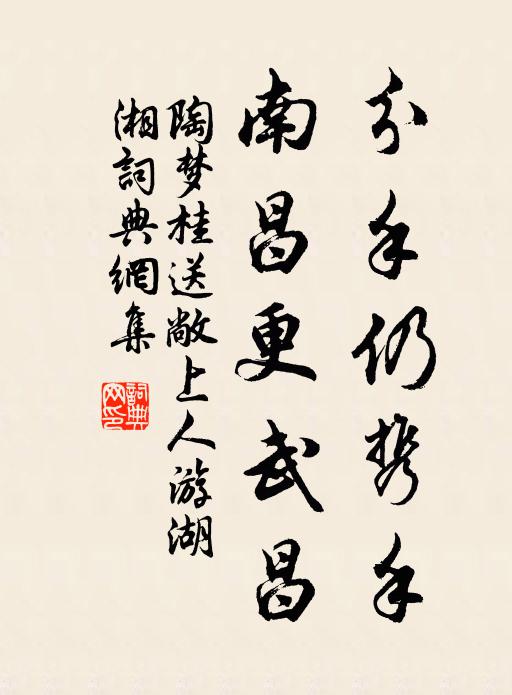 分手仍携手
南昌更武昌
陶梦桂送敞上人游湖
湘詞典網集
詞典網印